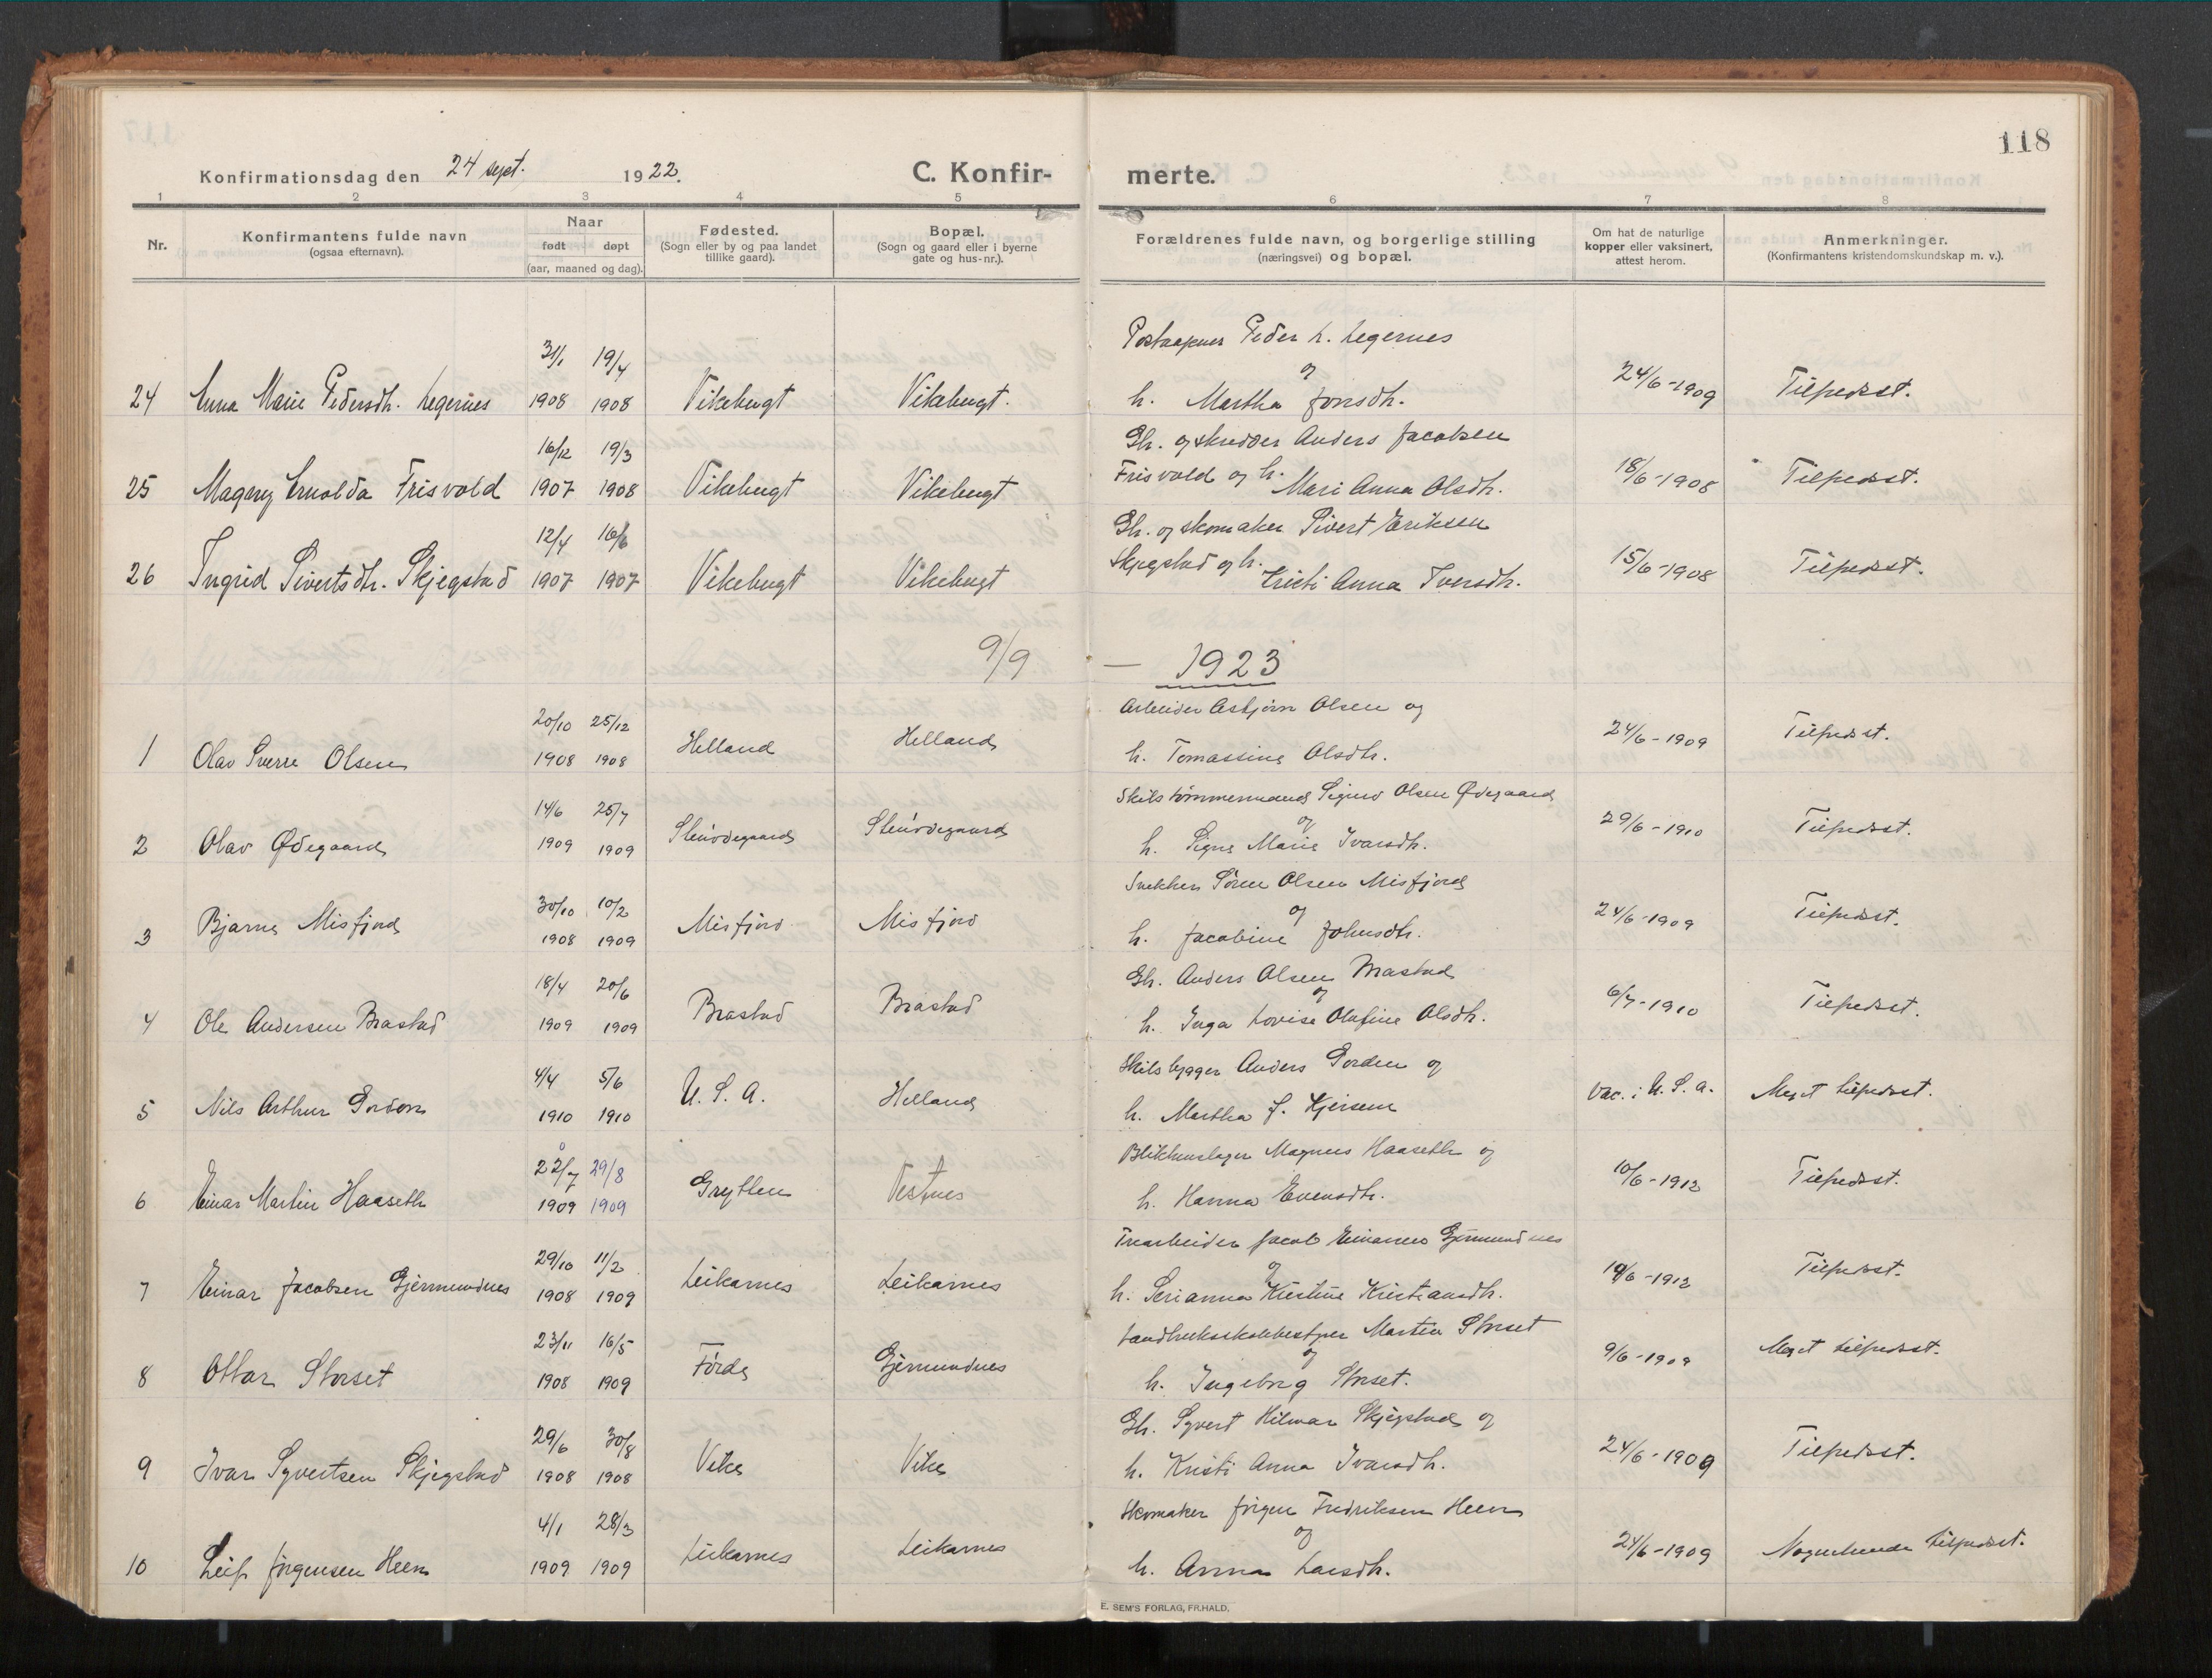 118
Konfirmationsdag den 24 sept. 1922. C. Konfir- merte.
1 2 3 4 5 6 7 8
Nr.
Konfirmantens fulde navn
(ogsaa efternavn).
Naar
født døpt
(aar, maaned og dag).
Fødested.
(Sogn eller by og paa landet
tillike gaard).
Bopæl.
(Sogn og gaard eller i byerne
gate og hus-nr.).
Forældrenes fulde navn, og borgerlige stilling
(næringsvei) og bopæl.
Om hat de naturlige
kopper eller vaksinert,
attest herom.
Anmerkninger.
(Konfirmantens kristendomskundskap m. v.).
31/1 19/4 Postaapner Peder L. Legernes
og
24 Anna Marie Pedersdh. Legernes 1908 1908 Vikebugt Vikebugt. h. Martha Jonsdh. 24/6-1909 Tilfredsst.
16/12 19/3 Gh. og skredder Anders Jacobsen
25 Magny Arnolda Frisvold 1907 1908 Vikebugt Vikebugt Frisvold og h. Mari Anna Olsdh. 18/6-1908 Tilfredsst.
12/4 16/6 Gh. og skomaker Sivert Eriksen
26 Ingrid Sivertsdh. Skjegstad 1907 1907 Vikebugt Vikebugt Skjegstad og h. Kristi Anna Iversdh. 15/6-1908 Tilfredsst.
9/9 — 1923
20/10 25/12 Arbeider Asbjørn Olsen og
1 Olav Sverre Olsen 1908 1908 Helland Helland h. Tomassine Olsdh. 24/6-1909 Tilfredsst.
14/6 25/7 Skibstømmermand Sigurd Olsen Ødegaard
og
2 Olav Ødegaard 1909 1909 Stenødegaard Stenødegaard h. Signe Marie Ivarsdh. 29/6-1910 Tilfredsst.
30/10 10/2 Snekker Søren Olsen Misfjord
og
3 Bjarne Misfjord 1908 1909 Misfjord Misfjord h. Jacobine Johnsdh. 24/6-1909 Tilfredsst.
18/4 20/6 Gh. Anders Olsen Brastad
og
4 Ole Andersen Brastad 1909 1909 Brastad Brastad h. Inga Lovise Olufine Olsdh. 6/7-1910 Tilfredsst.
4/4 5/6 Skibsbygger Anders Gorden og
5 Nils Arthur Gordon 1910 1910 U. S. A. Helland h. Martha J. Kjersem Vac. i U. S. A. Meget tilfredsst.
22/7 29/8 Blikkenslager Magnus Haaseth og
6 Einar Martin Haaseth 1909 1909 Grytten Vestnes h. Hanna Evensdh. 10/6-1912 Tilfredsst.
29/10 11/2 Træarbeider Jacob Einarsen Gjermundnes
og
7 Einar Jacobsen Gjermundnes 1908 1909 Leikarnes Leikarnes h. Serianna Kristine Kristiansdh. 10/6-1912 Tilfredsst.
23/11 16/5 Landbruksskolebestyrer Martin Storset
og
8 Ottar Storset 1908 1909 Førde Gjermundnes h. Ingeborg Storset. 9/6-1909 Meget tilfredsst.
29/6 30/8 Gh. Syvert Hilmar Skjegstad og
9 Ivar Syvertsen Skjegstad 1908 1908 Vike Vike h. Kristi Anna Ivarsdh. 24/6-1909 Tilfredsst.
4/1 28/3 Skomaker Jørgen Fredriksen Heen
og
10 Leif Jørgensen Heen 1909 1909 Leikarnes Leikarnes h. Anna Larsdh. 24/6-1909 Nogenlunde tilfredsst.
E. SEM'S FORLAG, FR.HALD.